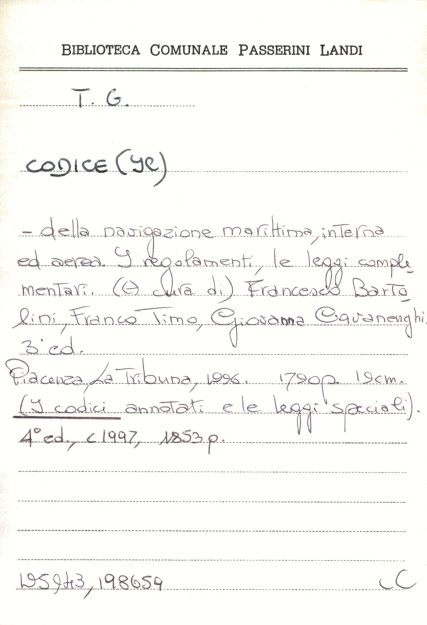 BIBLIOTECA COMUNALE PASSERINI LANDI
T. G.
CODICE (IL)
- della navigazione marittima, interna
ed aerea. I regolamenti, le leggi comple
mentari. (A cura di) Francesco Barto
lini, Franco Timo, Giovanna Cavanenghi.
3° ed.
Piacenza, La Tribuna, 1996. 1790p. 19cm.
(I codici annotati e le leggi speciali).
4° ed., c1997, 1853 p.
195943, 198659